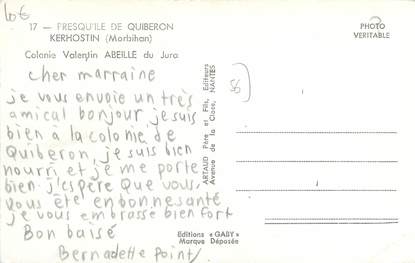 10€
17 — PRESQU'ILE DE QUIBERON
KERHOSTIN (Morbihan)
Colonie Valentin ABEILLE du Jura
cher marraine
je vous envoie un très
amical bonjour je suis
bien à la colonie de
Quiberon, je suis bien
nourri et je me porte
bien j'espère que vous,
vous ète en bonne santé
je vous embrasse bien fort
Bon baisé
Bernadette Point
ARTAUD Père et Fils, Editeurs
Avenue de la Close, NANTES
56
PHOTO
VERITABLE
Editions « GABY »
Marque Déposée